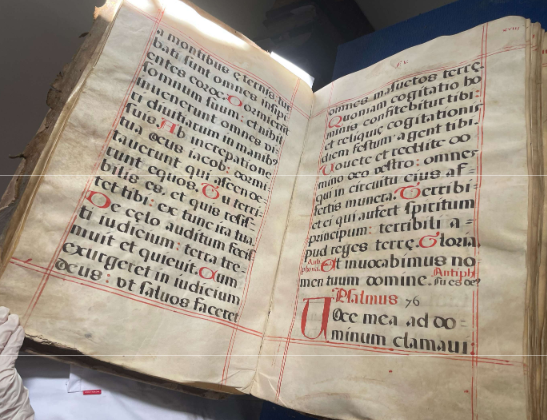 a montibus eternis tur
bati sunt omnes insipi
entes corde: Dormierūt
somnum suum: et nihil
inuenerunt omnes ui
ri diuitiarum in manib9
suis. Ab increpatione
tua deus iacob: dormi
tauerunt qui ascende
runt equos. Tu terri
bilis es, et quis resis
tet tibi: ex tunc ira tua.
De celo auditum fecisti
iudicium: terra tre
muit et quieuit. Cum
exurgeret in iudicium
deus: ut saluos faceret
omnes mansuetos terre.
Quoniam cogitatio ho
minis confitebitur tibi:
et reliquie cogitationis
diem festum agent tibi.
Uouete et reddite do
mino deo vestro: omnes
qui in circuitu eius af=
fertis munera. Terribi
et ei qui aufert spiritum
principum: terribili a=
pud reges terre. Gloria.
Et inuocabimus no
men tuum domine. Antiph.
Tu es de9
Psalmus 76
Uoce mea ad do=
minum clamaui